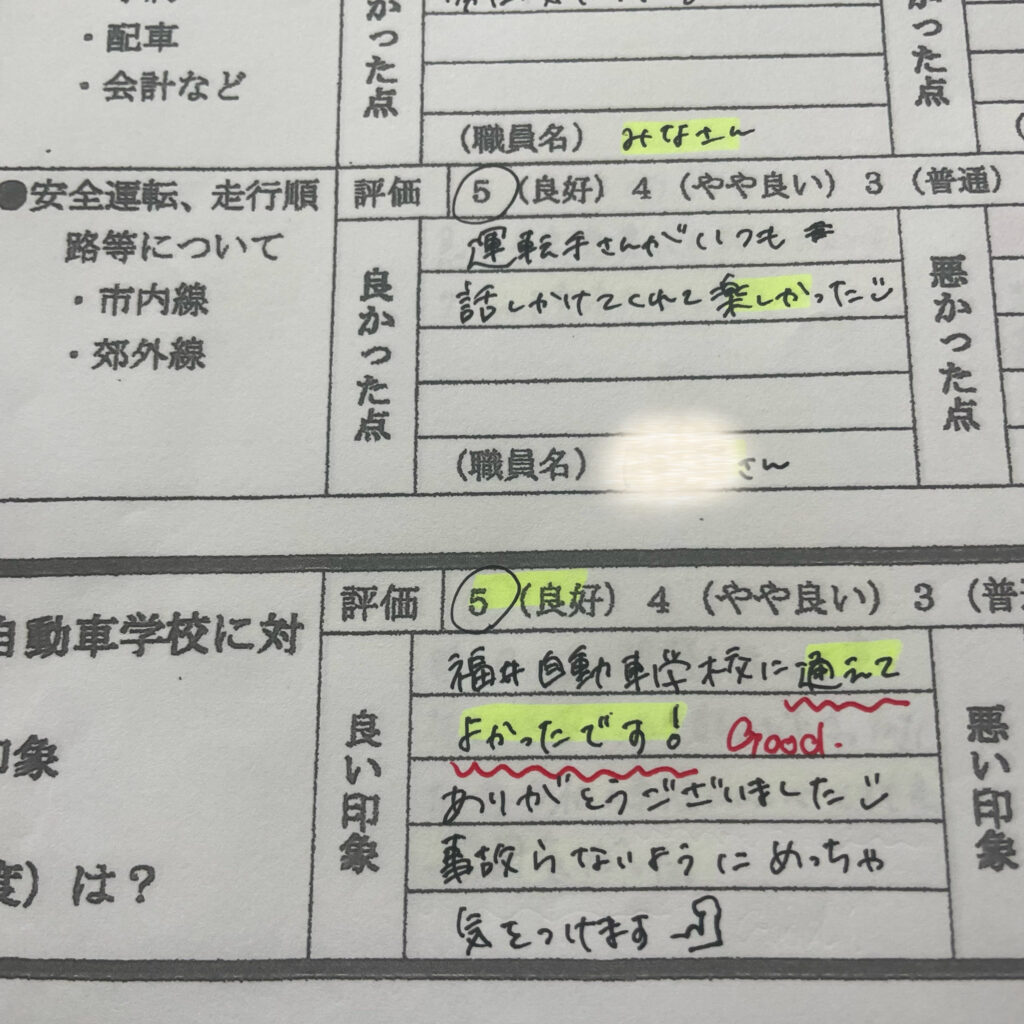 ・配車
・会計など
かった点
かった点
(職員名) みなさん
●安全運転、走行順
路等について
・市内線
・郊外線
評価 5 (良好) 4 (やや良い) 3 (普通)
良かった点
運転手さんがいつも
話しかけてくれて楽しかった
(職員名) さん
悪かった点
自動車学校に対
印象
度) は？
評価 5 (良好) 4 (やや良い) 3 (普通
良い印象
福井自動車学校に通えて
よかったです! Good.
ありがとうございました
事故らないようにめっちゃ
気をつけます
悪い印象